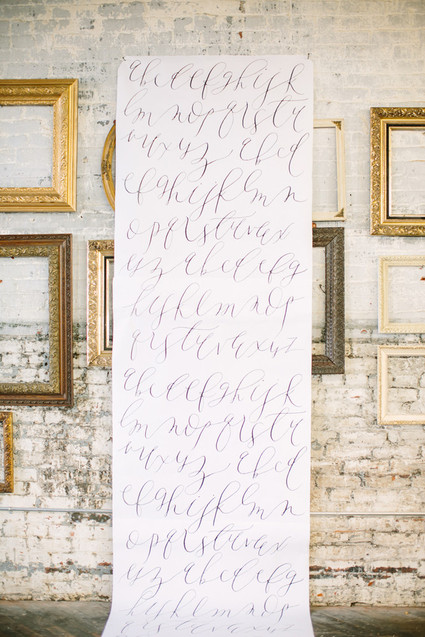 abcdefghijk
lmnopqrstu
vwxyz abcd
efghijklmn
opqrstuvwx
yz abcdefg
hijklmnop
qrstuvwxyz
abcdefghijk
lmnopqrstu
vwxyz abcd
efghijklmn
opqrstuvwx
yz abcdefg
hijklmnop